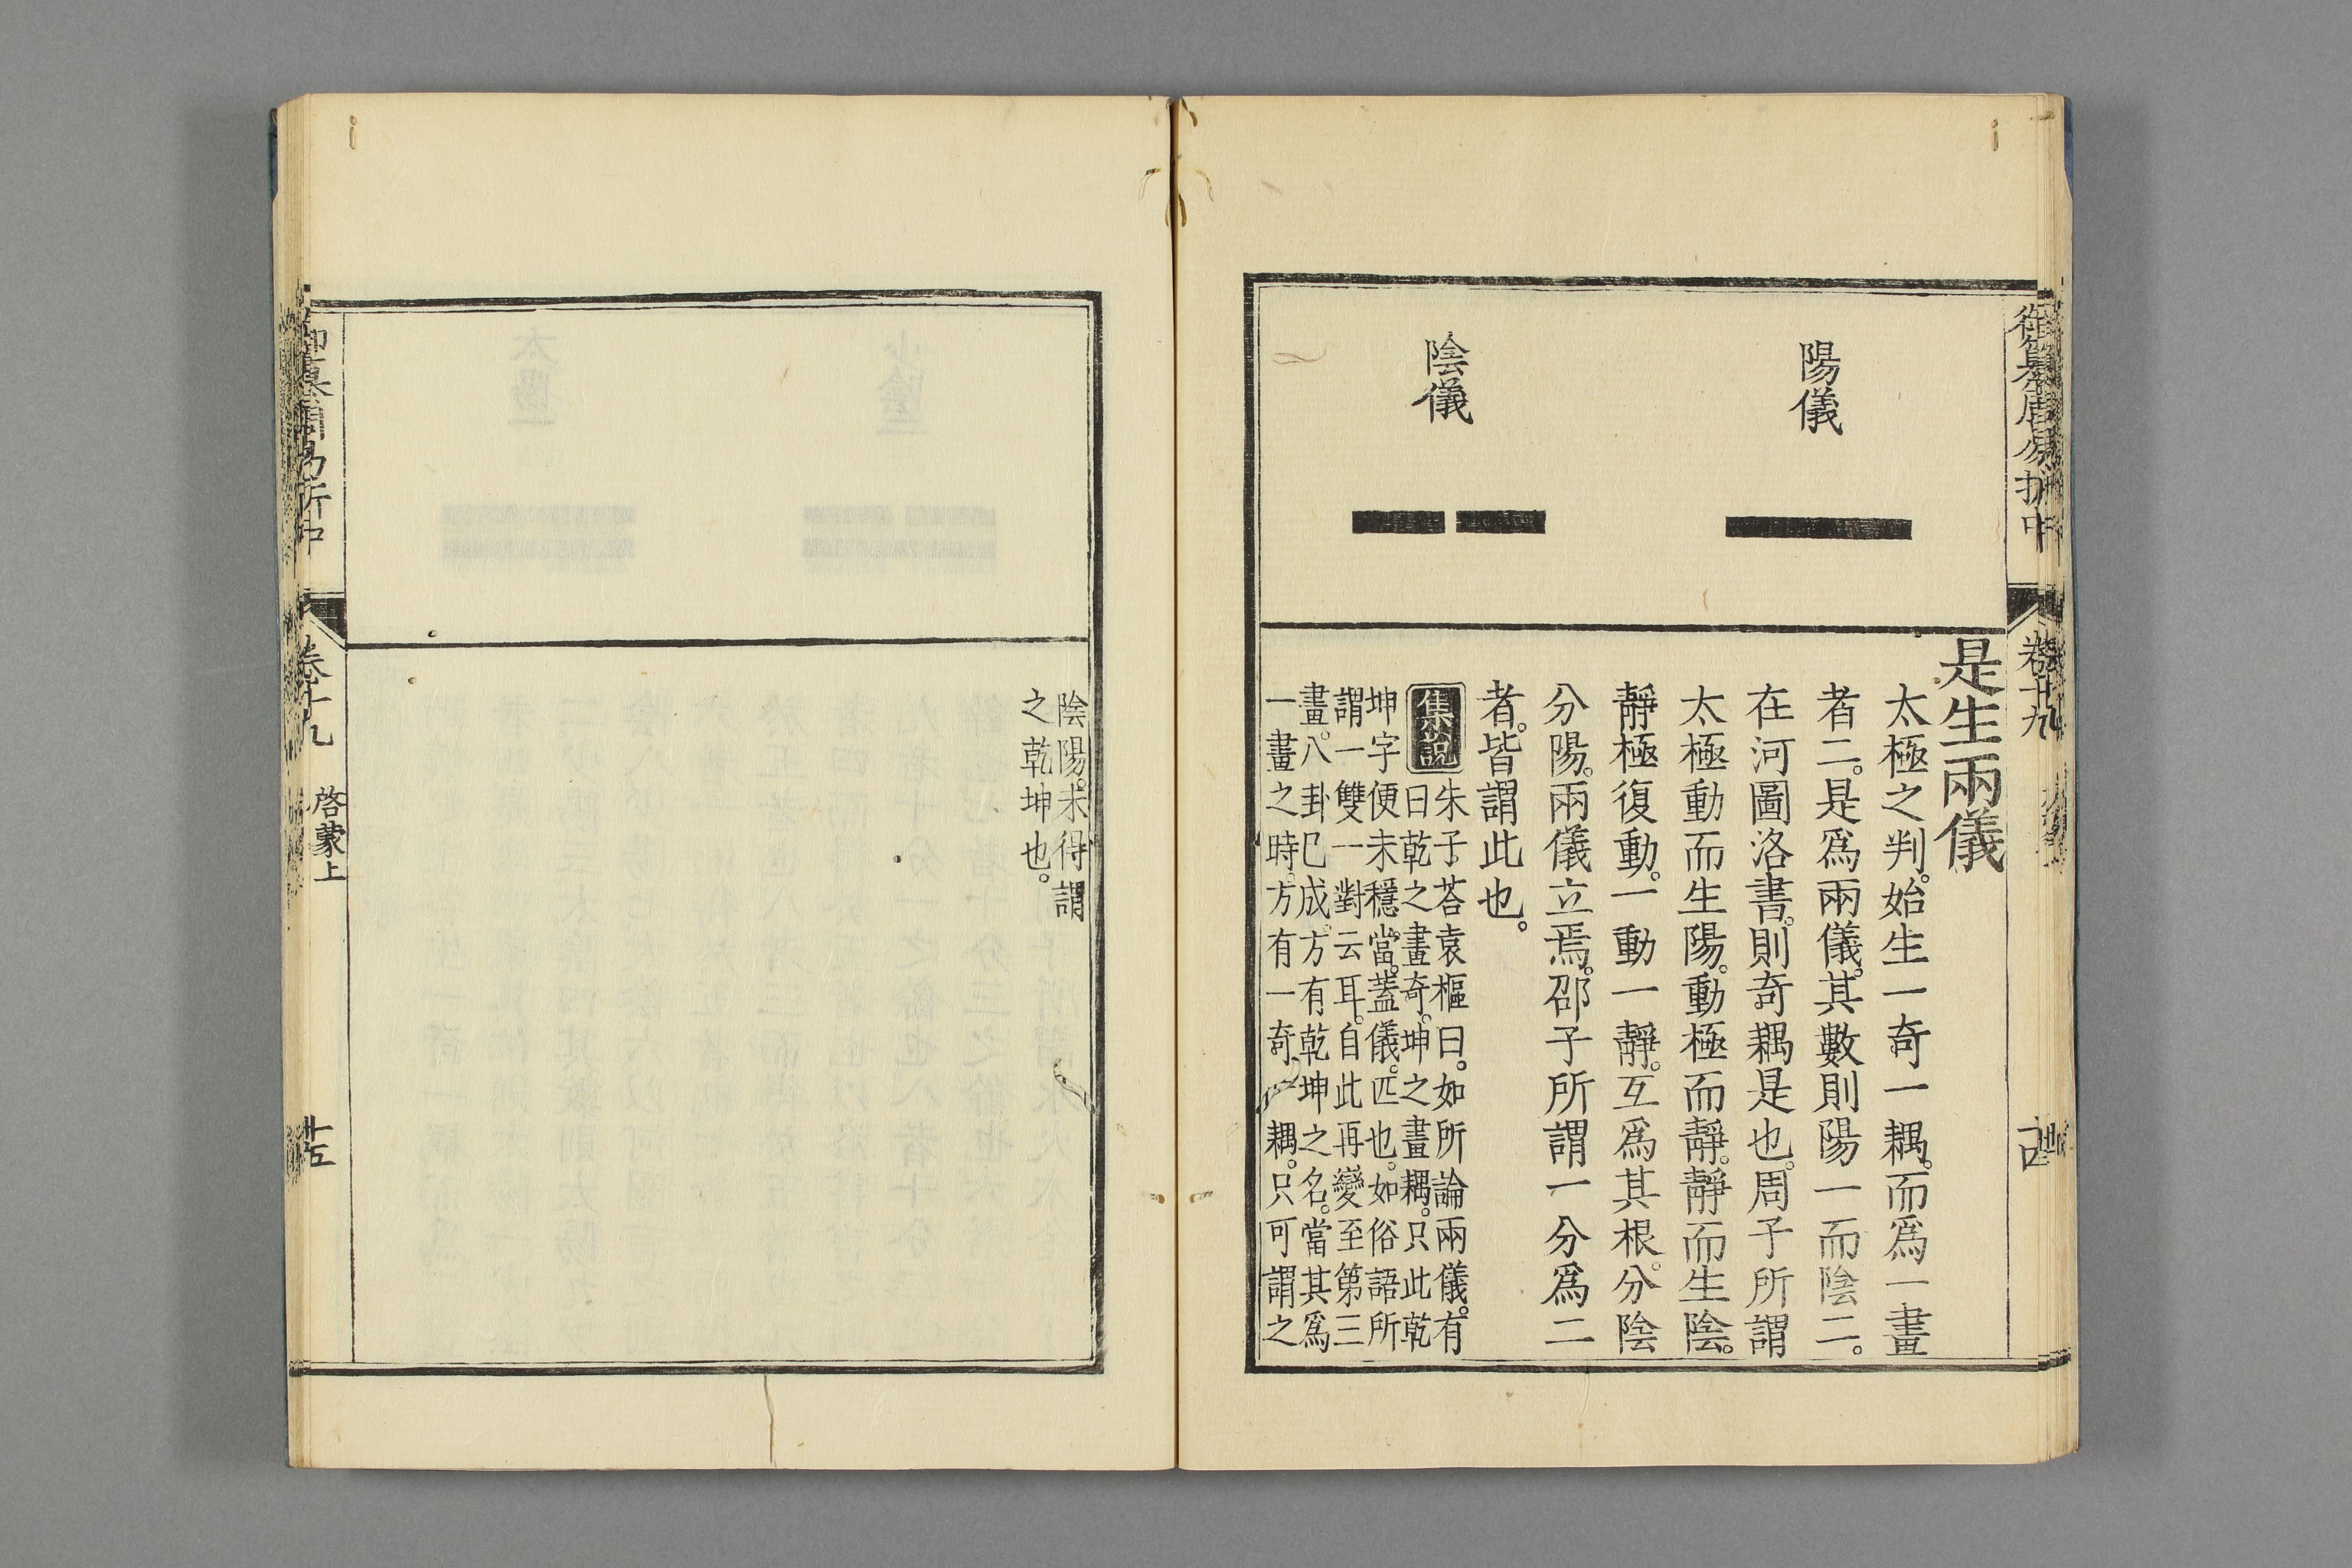 御纂周易折中
卷十九
陽儀
陰儀
是生兩儀
太極之判。始生一奇一耦。而爲一畫
者二。是爲兩儀。其數則陽一而陰二。
在河圖洛書。則奇耦是也。周子所謂
太極動而生陽。動極而靜。靜而生陰。
靜極復動。一動一靜。互爲其根。分陰
分陽。兩儀立焉。邵子所謂一分爲二
者。皆謂此也。
集說
朱子荅袁樞曰。如所論兩儀。有
曰乾之畫奇。坤之畫耦。只此乾
坤字便未穩當。蓋儀。匹也。如俗語所
謂一雙一對云耳。自此再變至第三
畫。八卦已成。方有乾坤之名。當其爲
一畫之時。方有一奇一耦。只可謂之
陰陽。未得謂
之乾坤也。
御纂周易折中
卷十九
啓蒙上
廿五